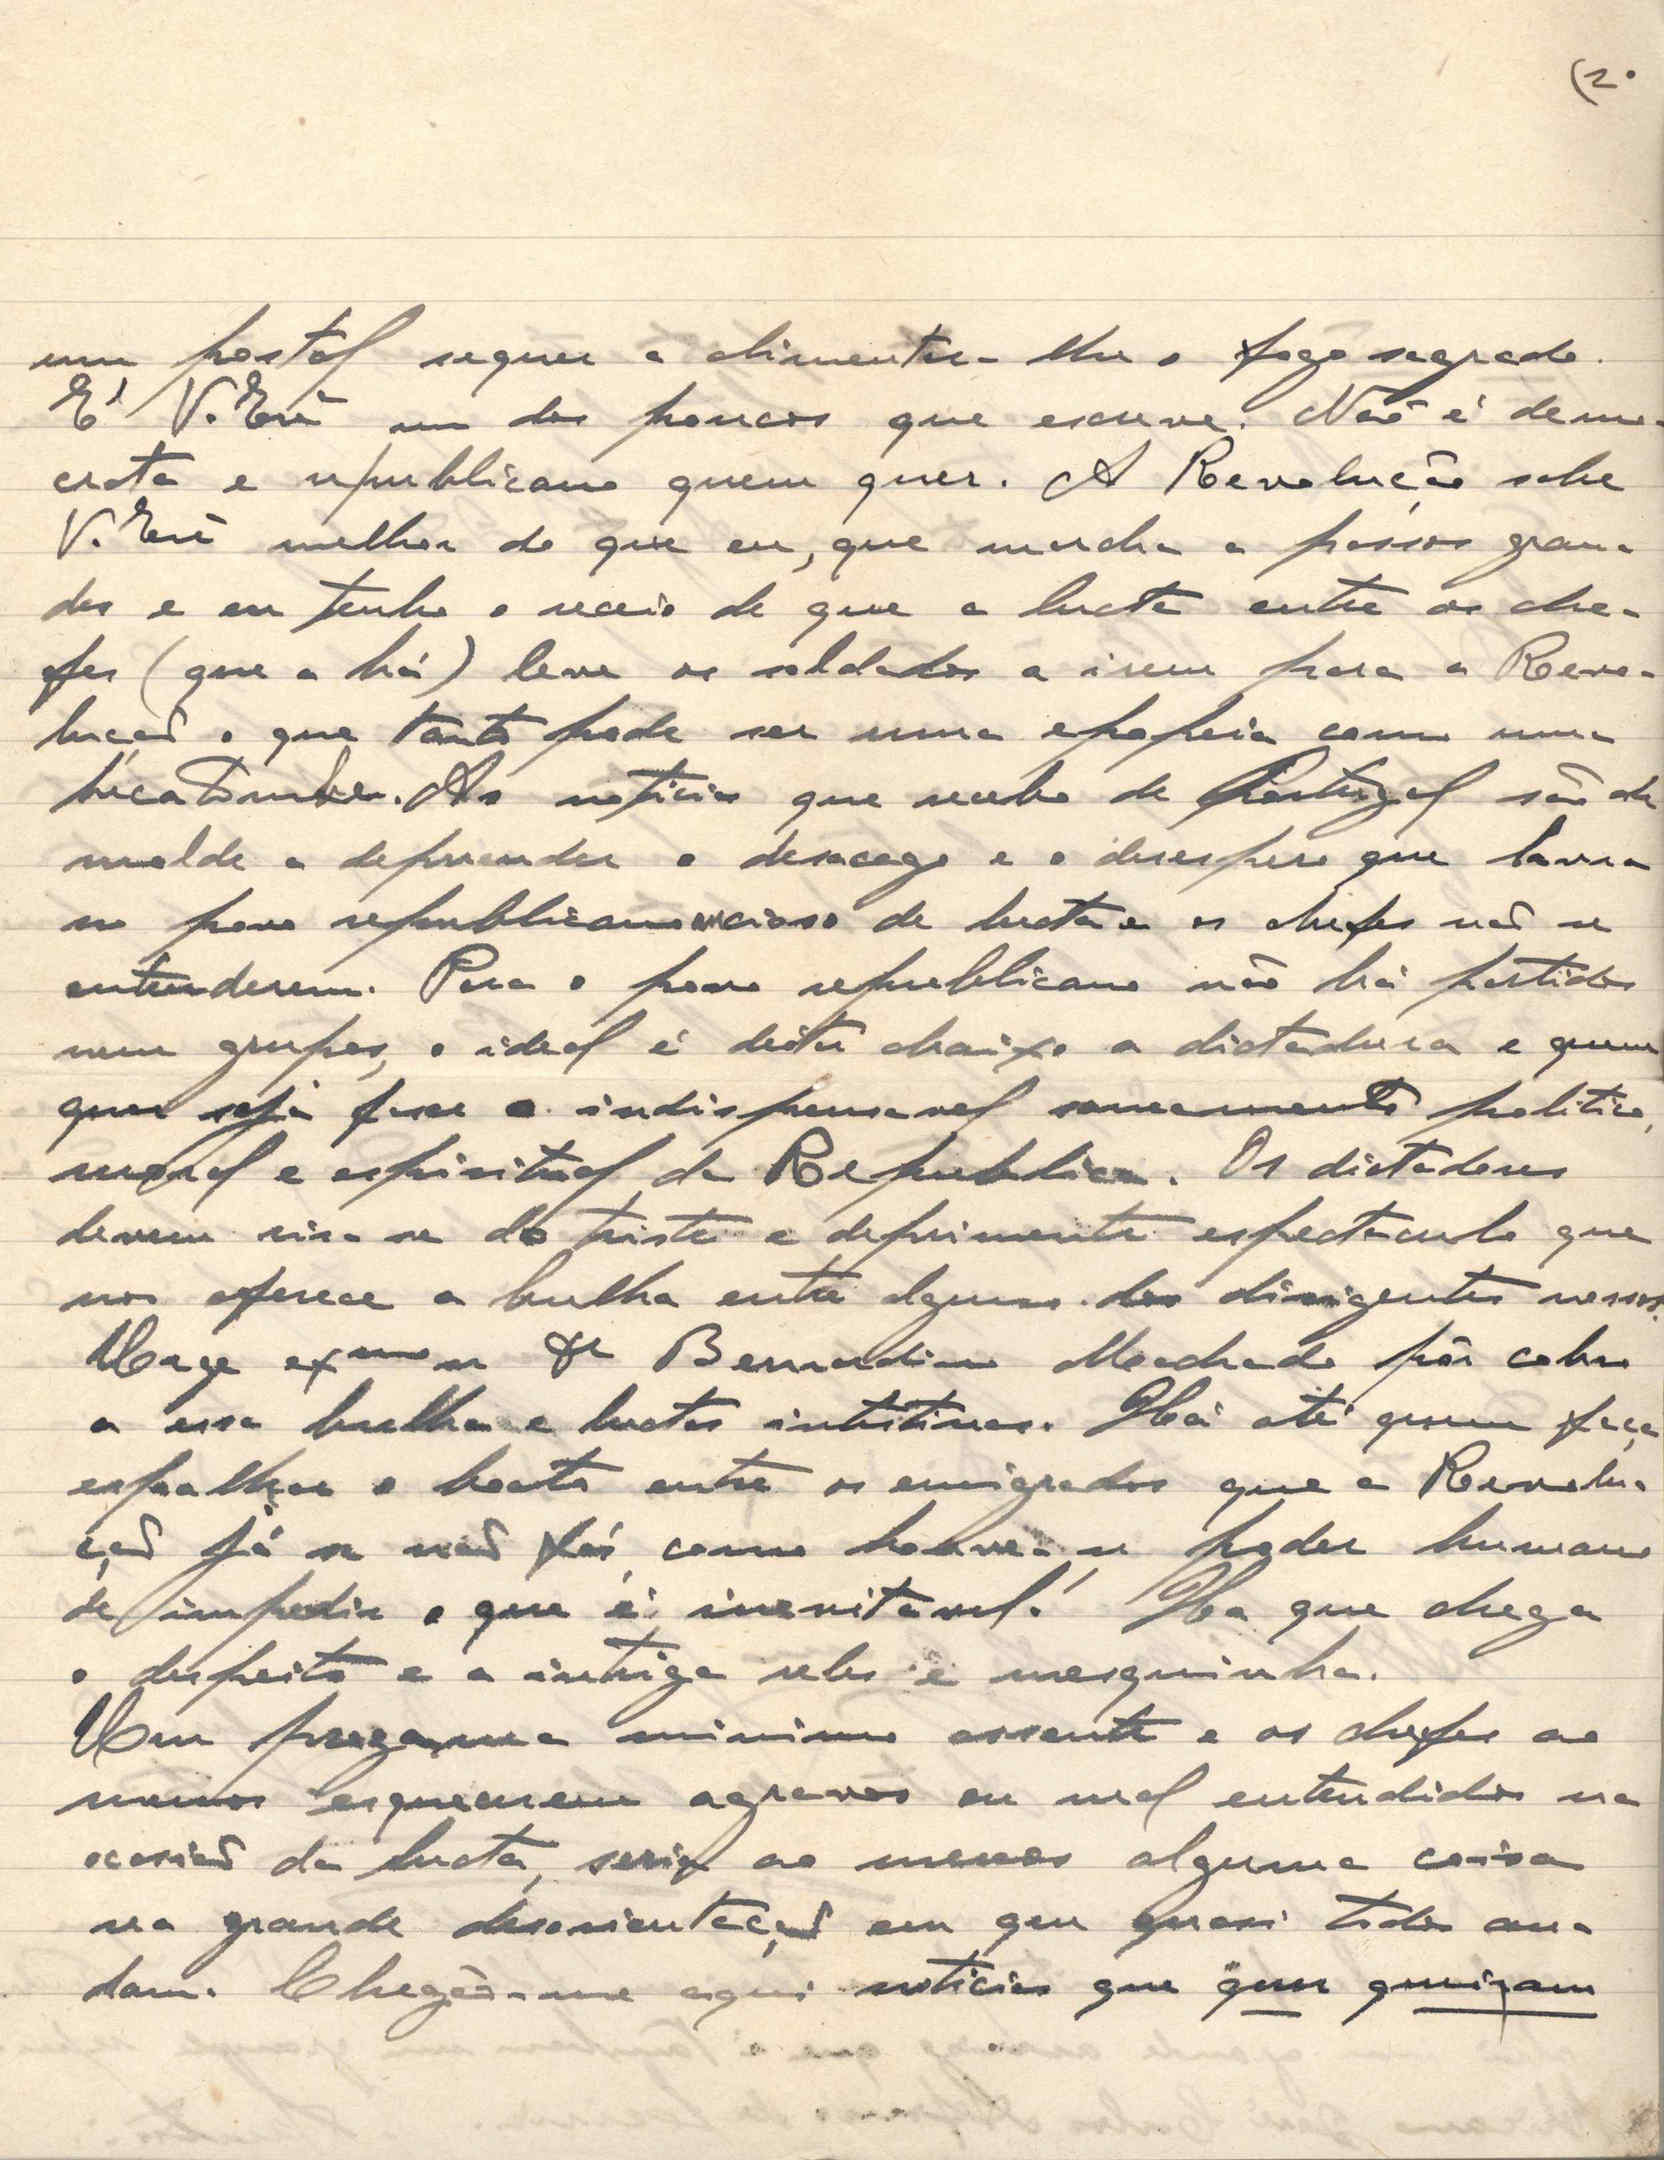 (2º
um postal sequer a alimentar-lhe o fogo sagrado.
E' V. Exª um dos poucos que escreve. Não é demo-
crata e republicano quem quer. A Revolução sabe
V. Exª melhor do que eu, que marcha a passos gran-
des e eu tenho o receio de que a lucta entre os che-
fes (que a há) leve os soldados a irem para a Revo-
lução o que tanto pode ser uma epopeia como uma
hecatombe. As noticias que recebo de Portugal são de
molde a depreender o desacego e o desespero que lavra
no povo republicano ancioso de lucta e os chefes não se
entenderem. Para o povo republicano não há partidos
nem grupos, o ideal é deitar abaixo a dictadura e quem
quer seja fazer o indispensavel saneamento politico,
moral e espiritual da Republica. Os dictadores
devem rir-se do triste e deprimente espectaculo que
nos oferece a bulha entre alguns dos dirigentes nossos.
Urge exmo sr Dr Bernardino Machado pôr cobro
a essa bulha e luctas intestinas. Há até quem faça
espalhar o boato entre os emigrados que a Revolu-
ção já se não fás, como houvera poder humano
de impedir o que é inevitavel! Ha que chega
o despeito e a intriga reles e mesquinha.
Um programa minimo assente e os chefes ao
menos esquecerem agravos ou mal entendidos na
ocasião da lucta, seria ao menos alguma coisa
na grande desorientação em que quasi todos an-
dam. Chegão-me aqui noticias que quer queiram